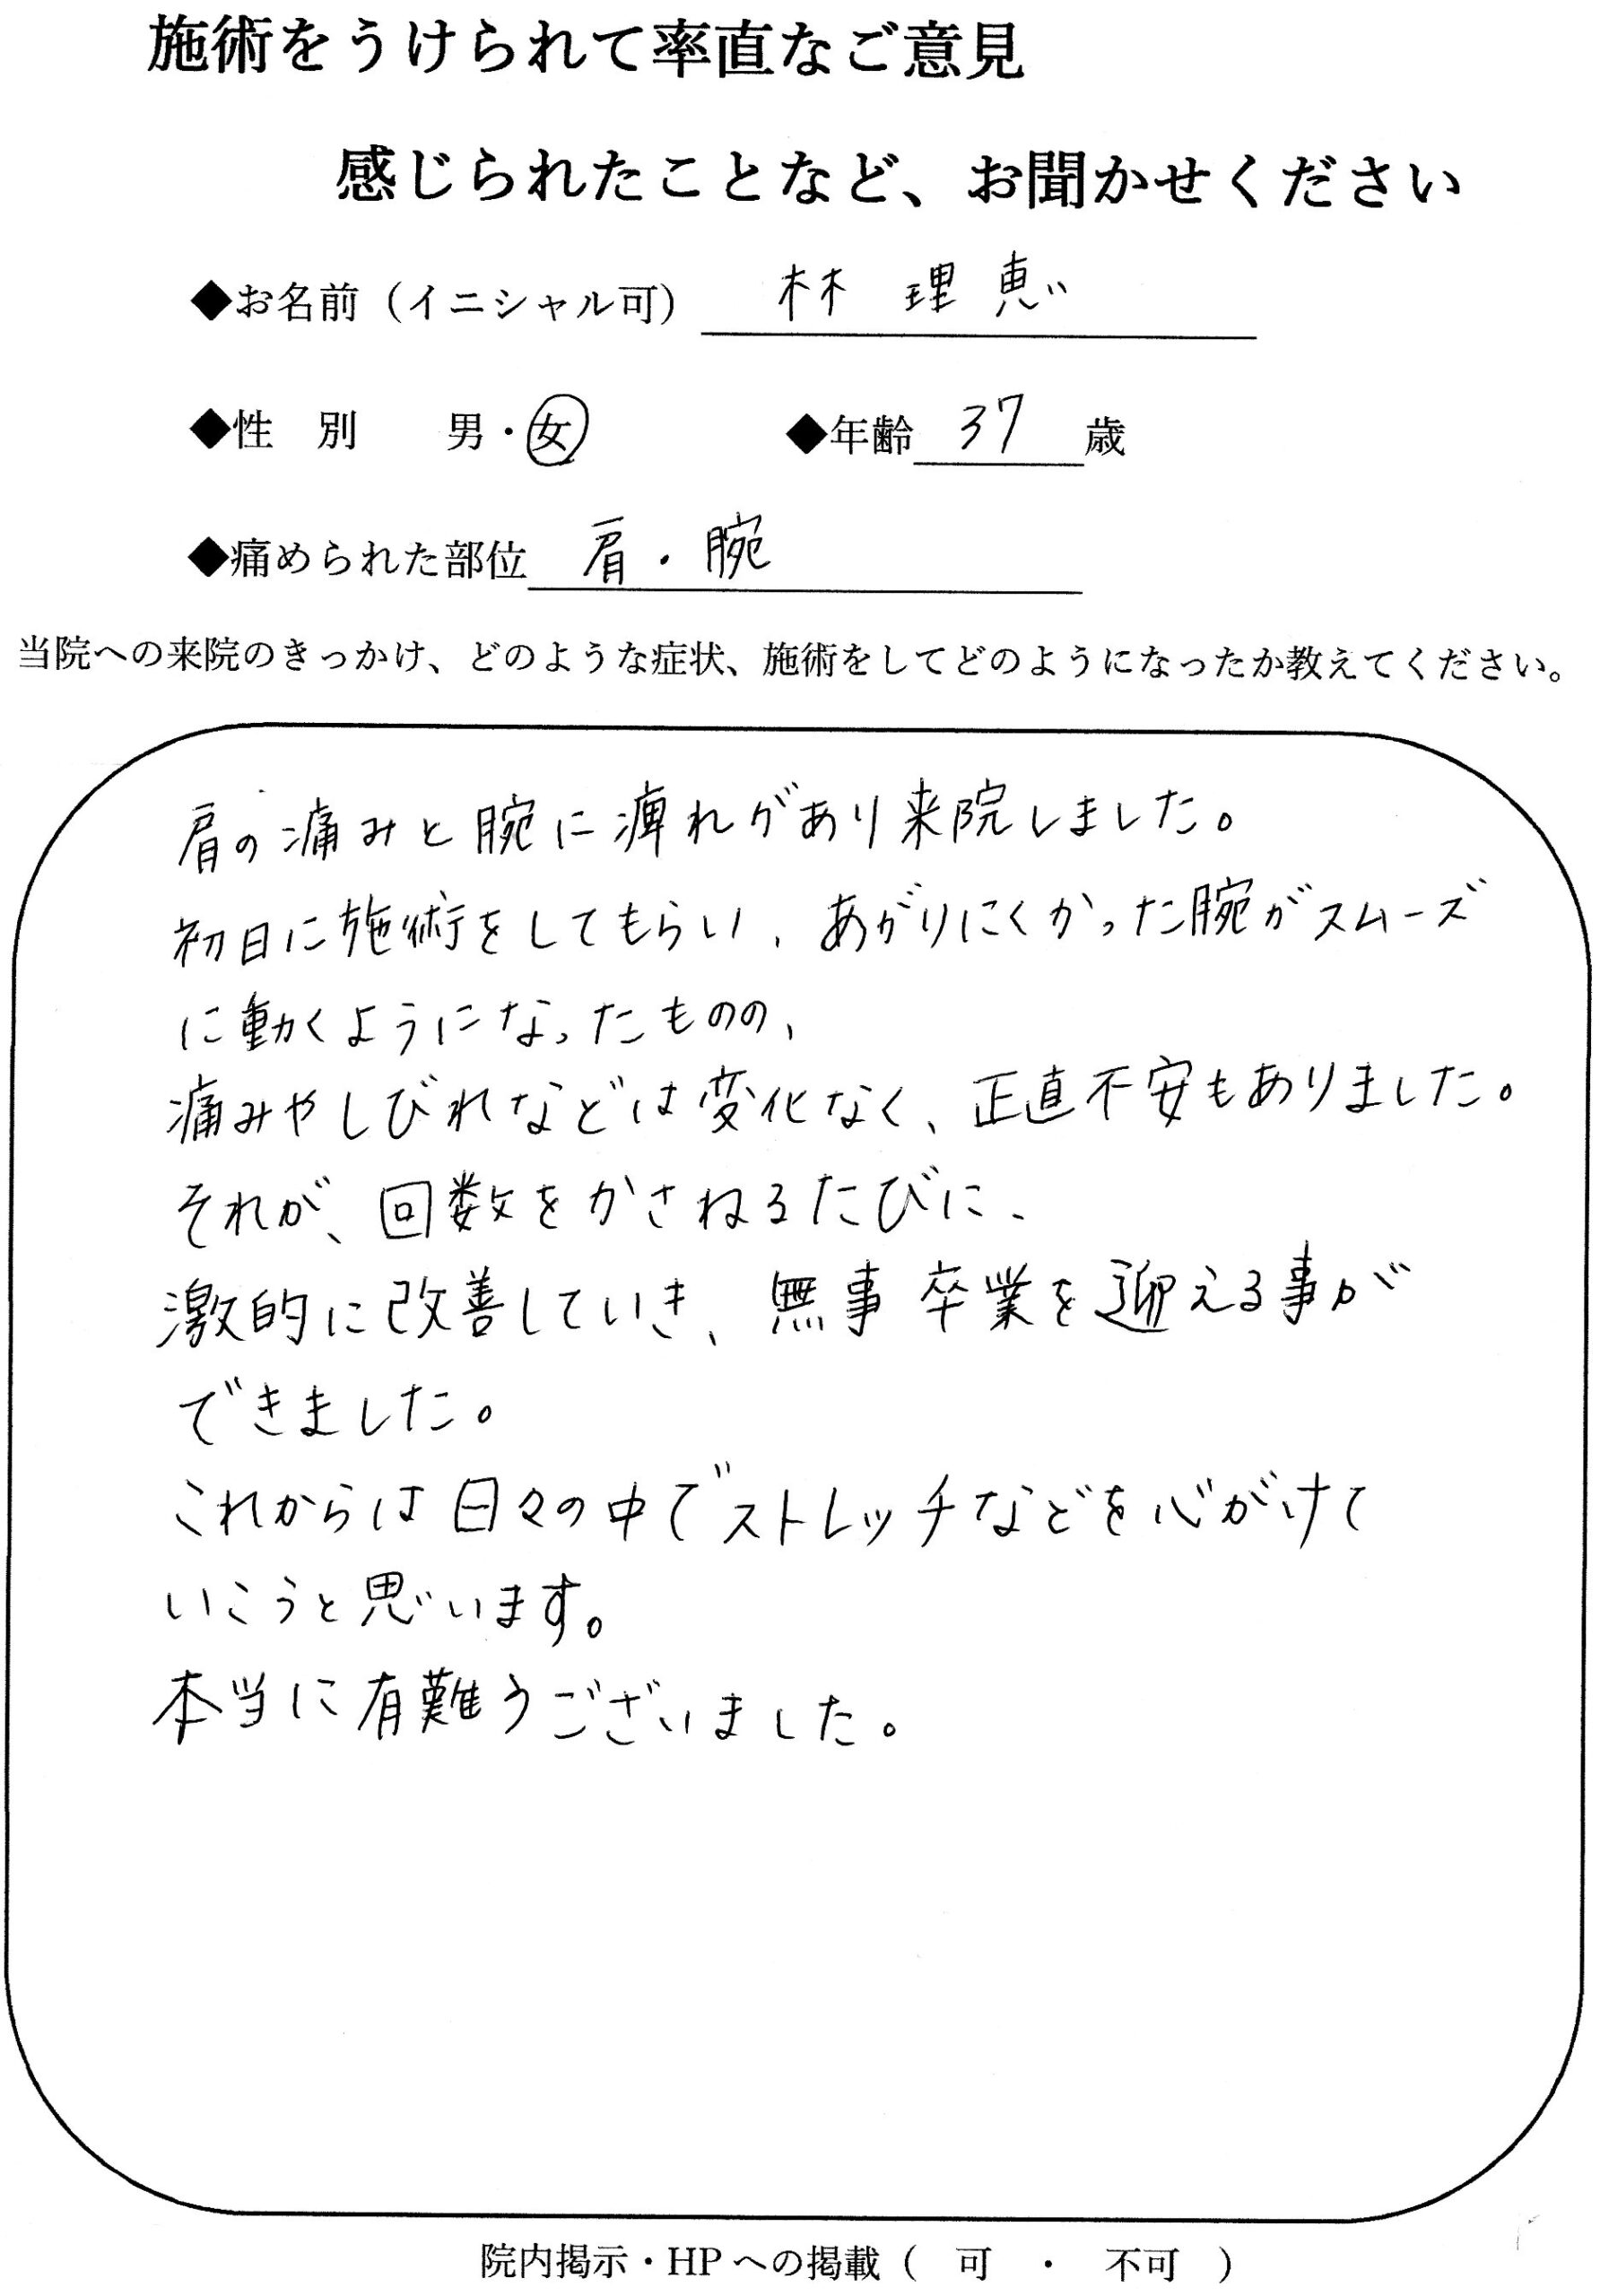 施術をうけられて率直なご意見
感じられたことなど、お聞かせください
◆お名前（イニシャル可） 林 理恵
◆性 別 男・女 ◆年齢 37 歳
◆痛められた部位 肩・腕
当院への来院のきっかけ、どのような症状、施術をしてどのようになったか教えてください。
肩の痛みと腕に痺れがあり来院しました。
初日に施術をしてもらい、あがりにくかった腕がスムーズ
に動くようになったものの、
痛みやしびれなどは変化なく、正直不安もありました。
それが、回数をかさねるたびに、
激的に改善していき、無事卒業を迎える事が
できました。
これからは日々の中でストレッチなどを心がけて
いこうと思います。
本当に有難うございました。
院内掲示・HPへの掲載（ 可 ・ 不可 ）